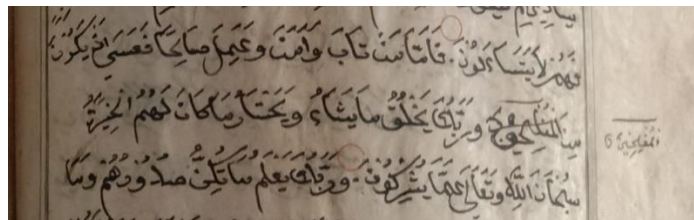 فَهُمْ لَا يَتَسَاءَلُونَ فَأَمَّا مَنْ تَابَ وَآمَنَ وَعَمِلَ صَالِحًا فَعَسَىٰ أَنْ يَكُونَ
مِنَ الْمُفْلِحِينَ وَرَبُّكَ يَخْلُقُ مَا يَشَاءُ وَيَخْتَارُ مَا كَانَ لَهُمُ الْخِيَرَةُ
سُبْحَانَ اللَّهِ وَتَعَالَىٰ عَمَّا يُشْرِكُونَ وَرَبُّكَ يَعْلَمُ مَا تُكِنُّ صُدُورُهُمْ وَمَا